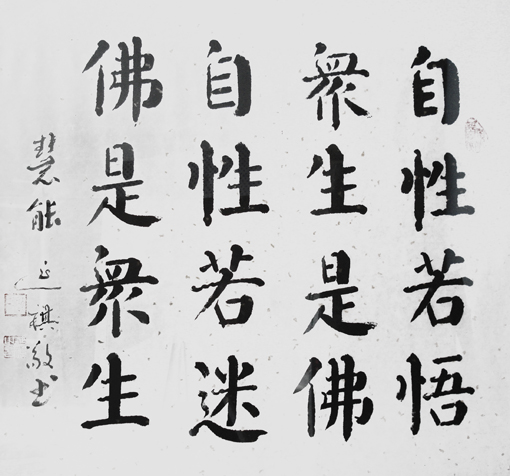 自性若悟
眾生是佛
自性若迷
佛是眾生
慧能 正琪敬书